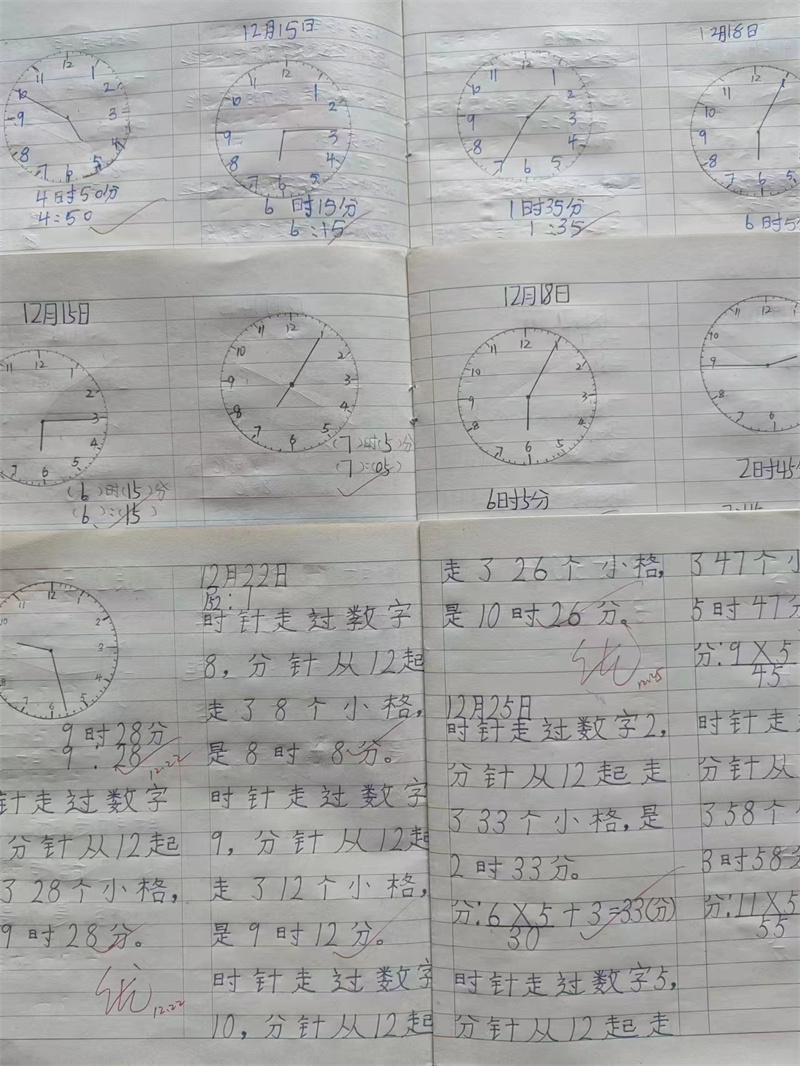 12月15日
12月18日
4时50分
4:50
6时15分
6:15
1时35分
1:35
6时5
12月15日
12月18日
(6)时(15)分
(6):(15)
(7)时(5)分
(7):(05)
6时5分
2时45分
9时28分
9:28
12.22
针走过数字
分针从12起
328个小格,
9时28分。
优
12.22
12月22日
时针走过数字
8,分针从12起
走了8个小格,
是8时8分。
时针走过数字
9,分针从12起
走了12个小格,
是9时12分。
时针走过数字
10,分针从12起
走了26个小格,
是10时26分。
优
12.25
12月25日
时针走过数字2,
分针从12起走
了33个小格,是
2时33分。
分:6×5+3=33(分)
30
时针走过数字5,
分针从12起走
了47个小
5时47分
分:9×5
45
时针走过
分针从
了58个
3时58分
分:11×5
55